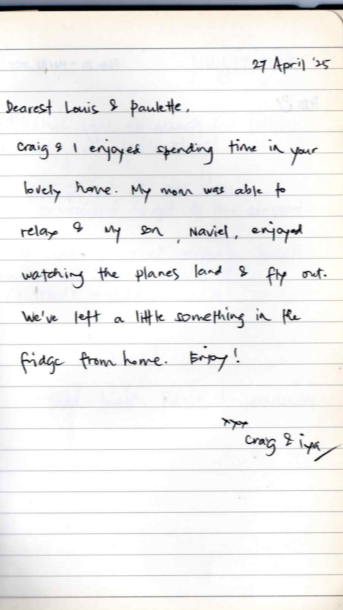 27 April '25
Dearest Louis & Paulette,
Craig & I enjoyed spending time in your
lovely home. My mom was able to
relax & my son, Naviel, enjoyed
watching the planes land & fly out.
We've left a little something in the
fridge from home. Enjoy!
xxx
Craig & iya